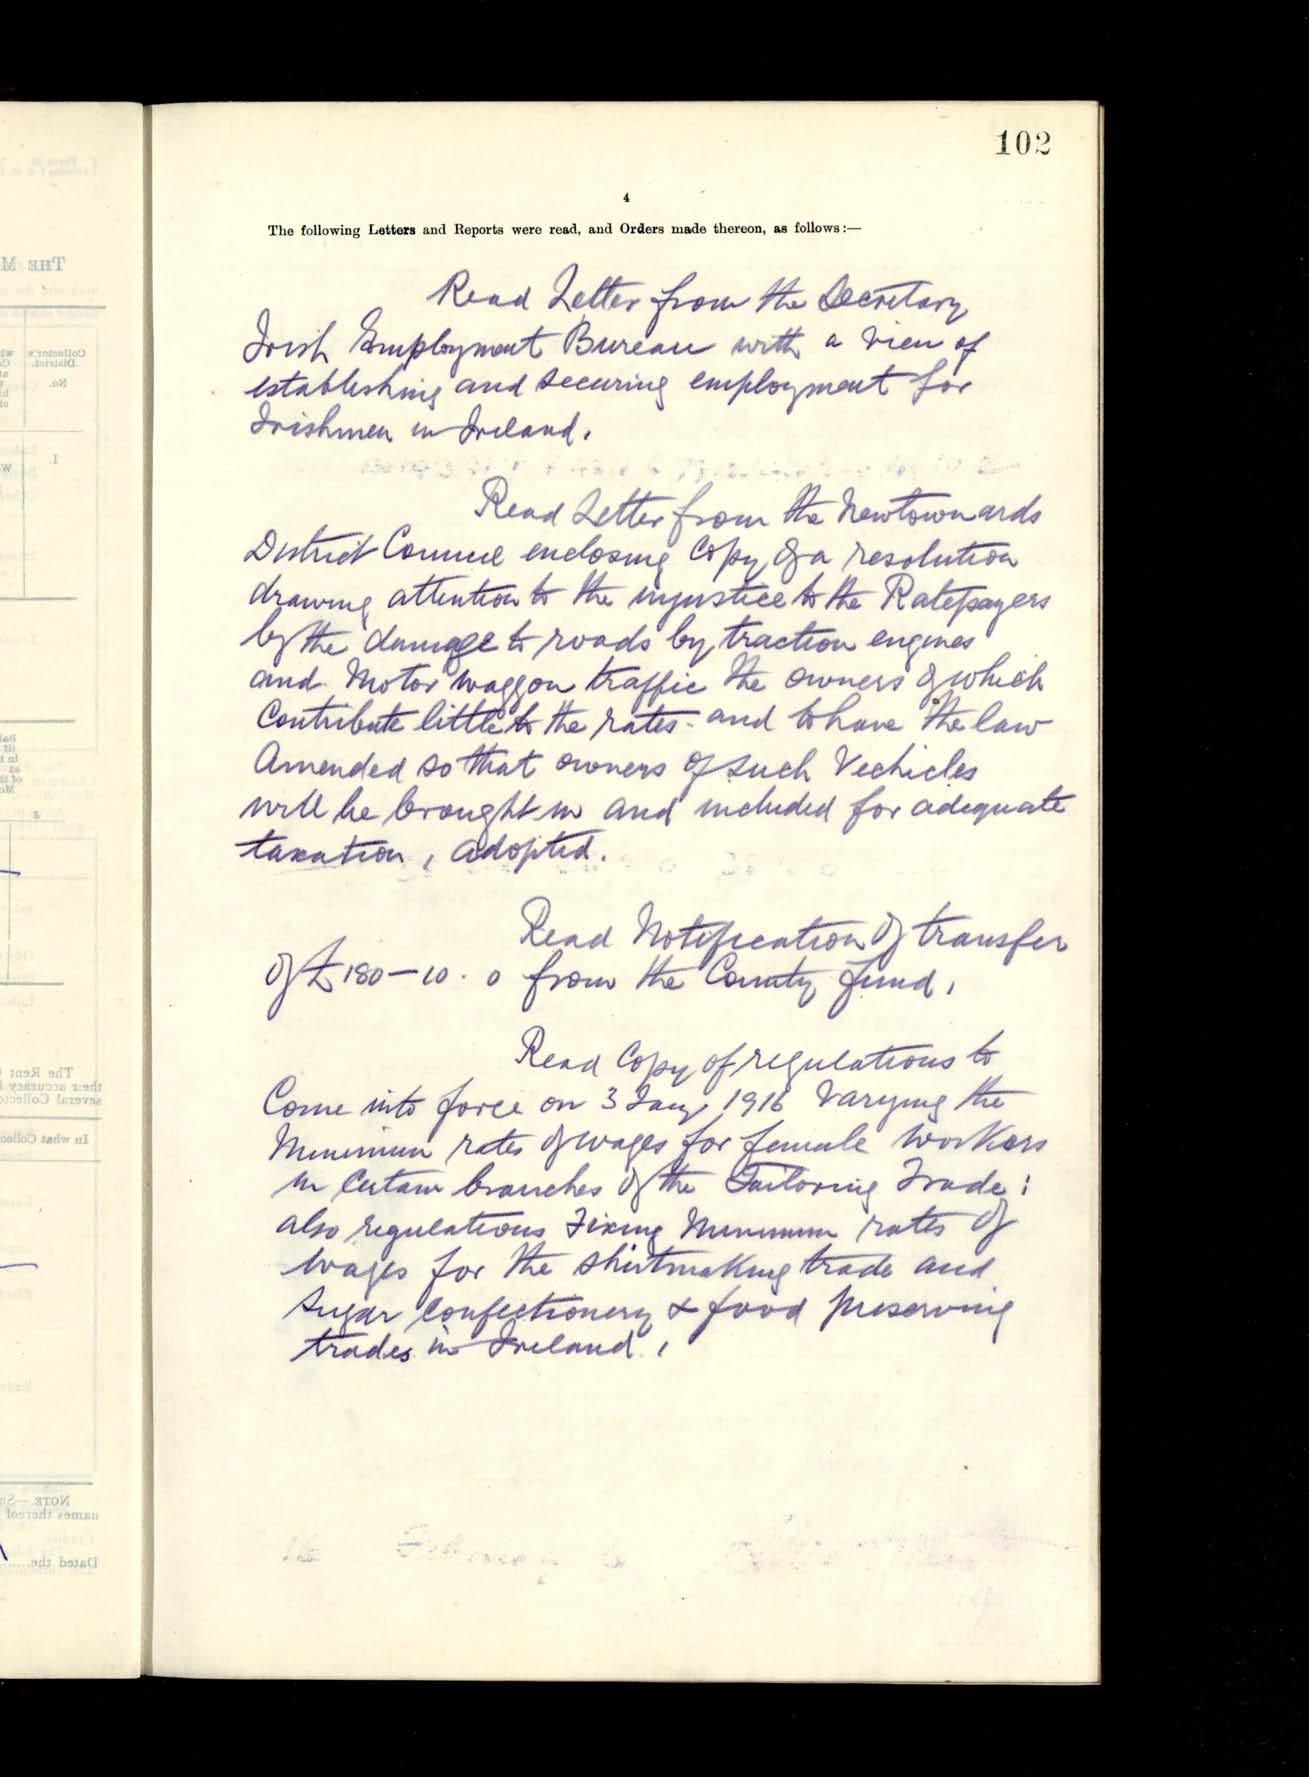 102
4
The following Letters and Reports were read, and Orders made thereon, as follows:—
Read Letter from the Secretary
Irish Employment Bureau with a view of
establishing and securing employment for
Irishmen in Ireland.
Read Letter from the Newtownards
District Council enclosing copy of a resolution
drawing attention to the injustice to the Ratepayers
by the damage to roads by traction engines
and Motor waggon traffic the owners of which
contribute little to the rates - and to have the law
Amended so that owners of such Vechicles
will be brought in and included for adequate
taxation, adopted.
Read Notification of transfer
of £180-10.0 from the County fund,
Read Copy of regulations to
Come into force on 3 Jany 1916 Varying the
Minimum rates of wages for female workers
in Certain branches of the Tailoring Trade;
also regulations Fixing Minimum rates of
Wages for the shirtmaking trade and
Sugar Confectionery & food preserving
trades in Ireland,
THE M
Collector's
District.
No.
1.
The Rent
their accuracy
several Collecto
In what Collec
NOTE.—
names thereof
Dated the